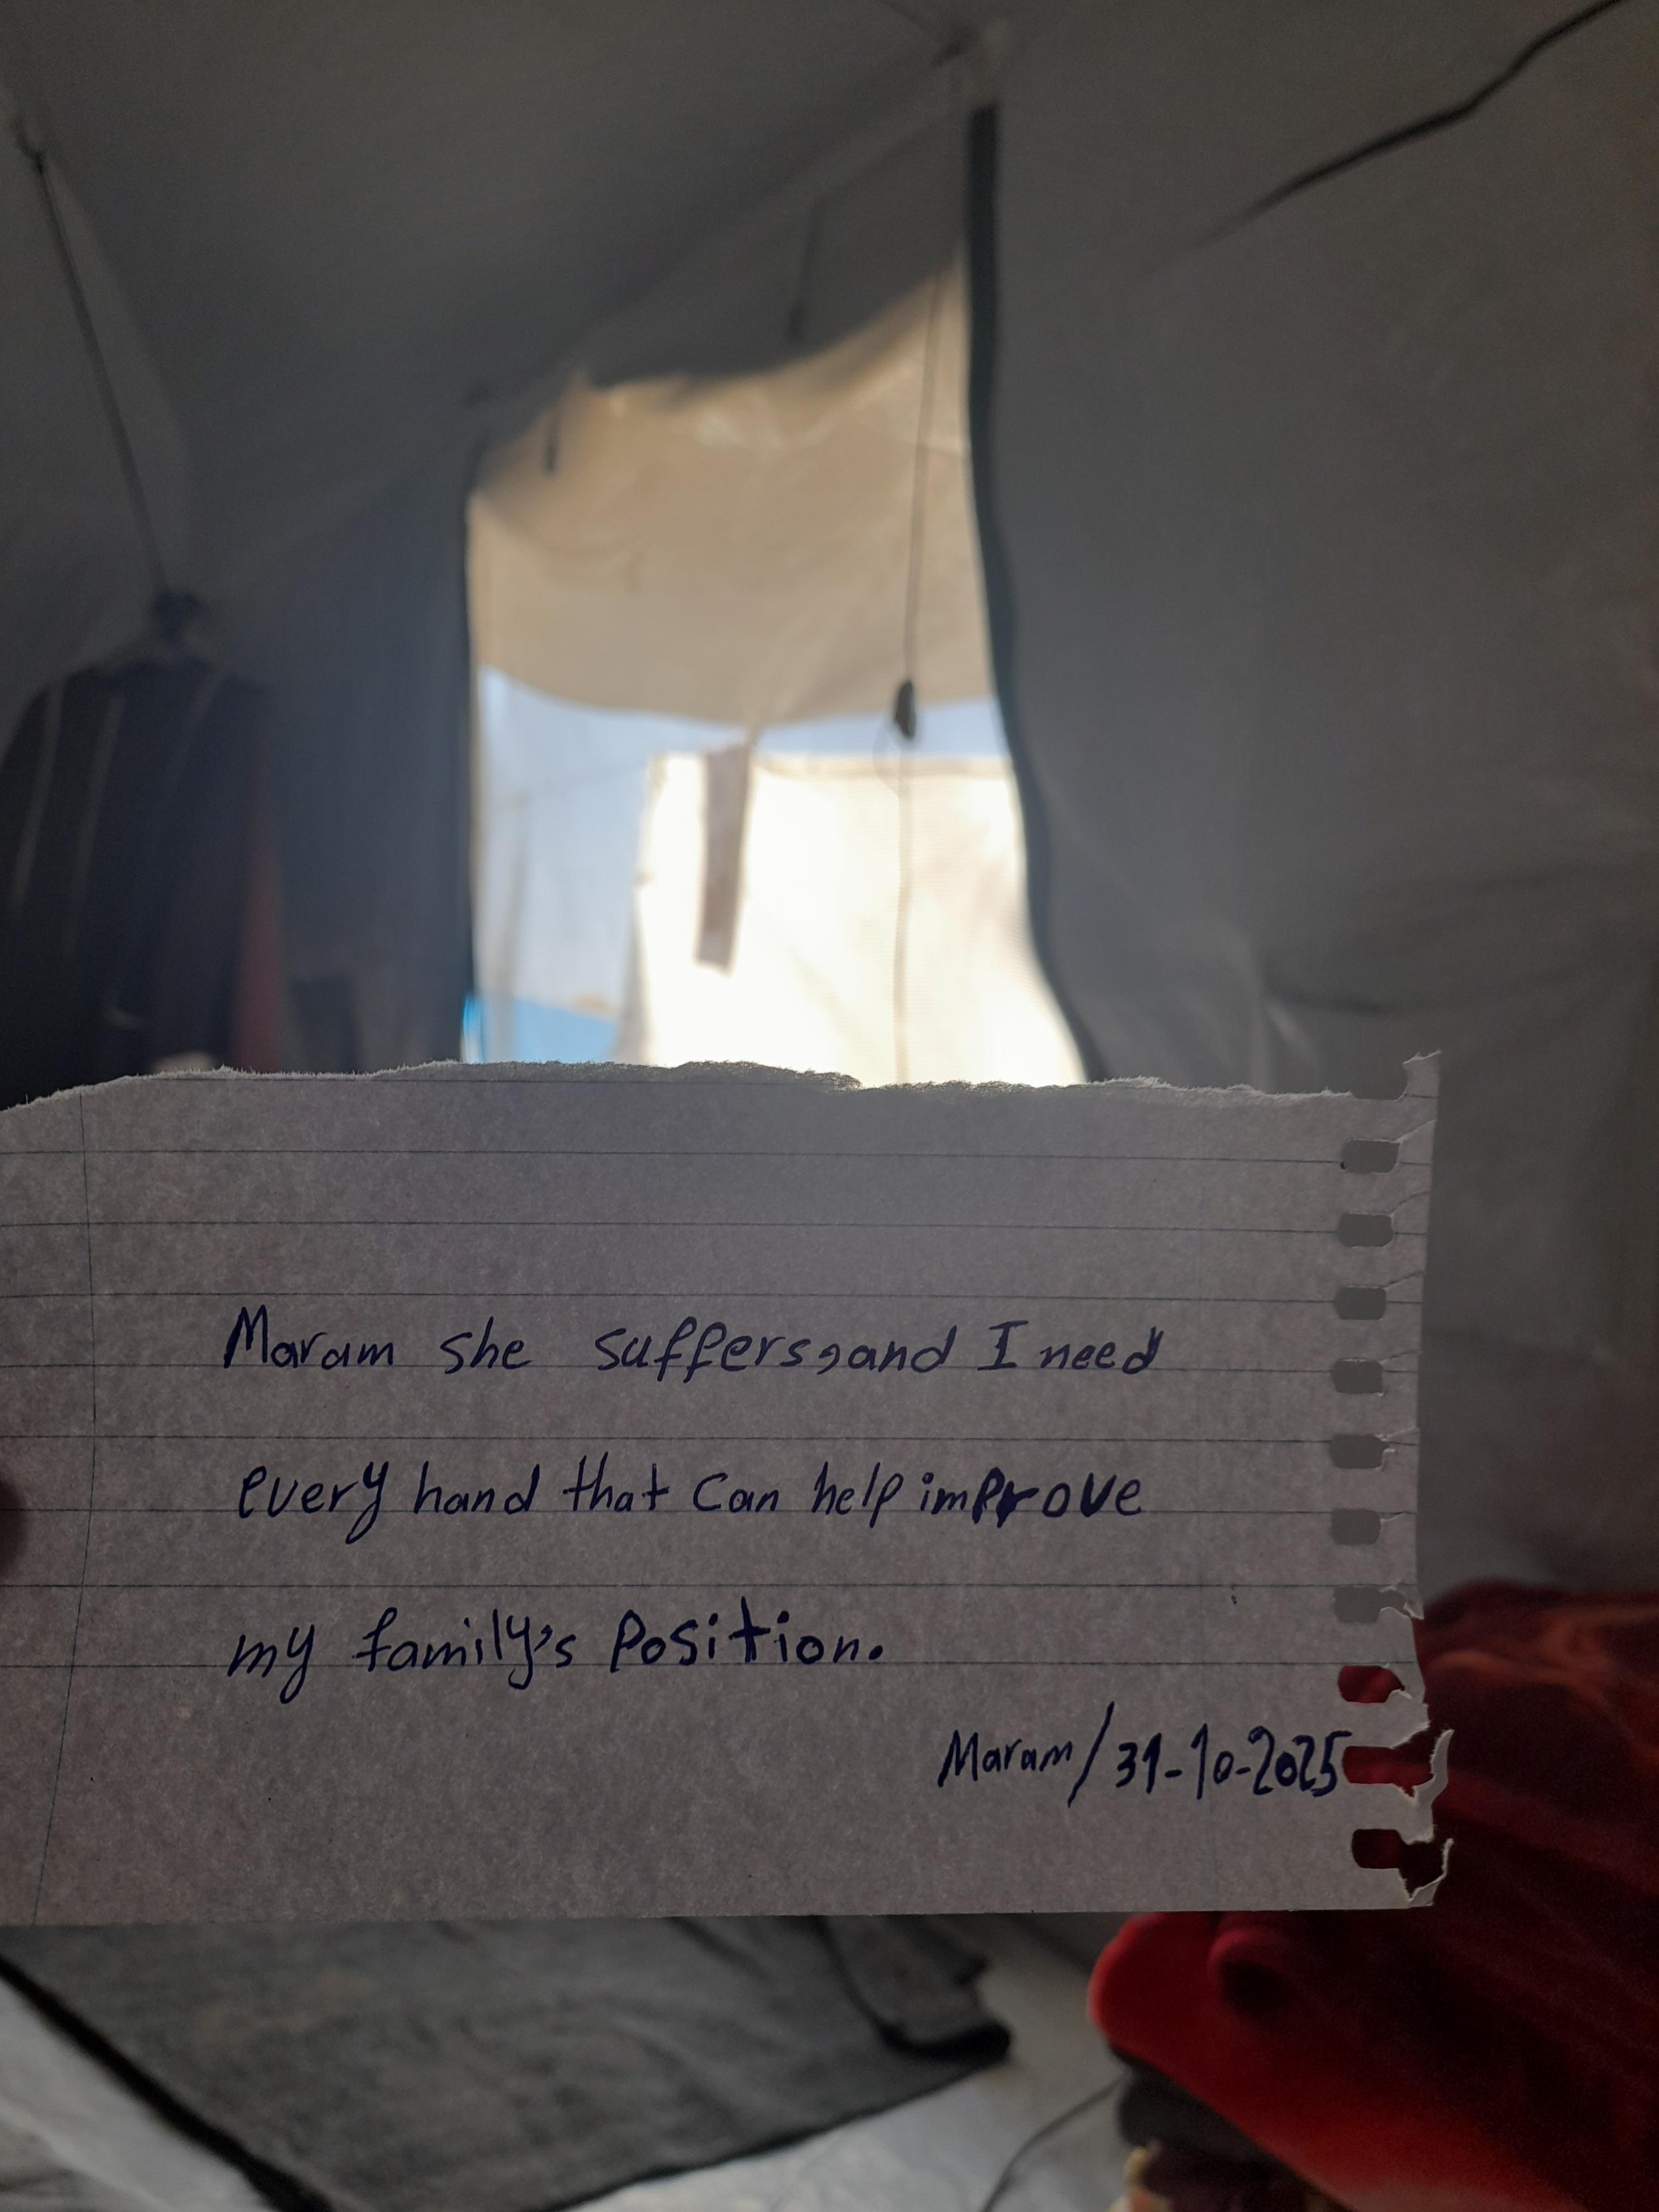 Maram she suffers, and I need
every hand that can help improve
my family's Position.
Maram/31-10-2025